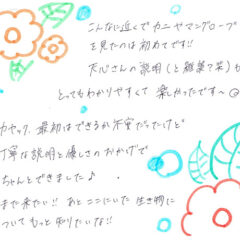 こんなに近くでカニやマングローブ
を見たのは初めてです!!
さんの説明(と雑学?笑)も
とってもわかりやすくて楽しかったです〜
カヤック、最初はできるか不安だったけど
丁寧な説明と優しさのおかげで
ちゃんとできました♪
また来たい!! あとここにいた生き物に
ついてもっと知りたいな!!